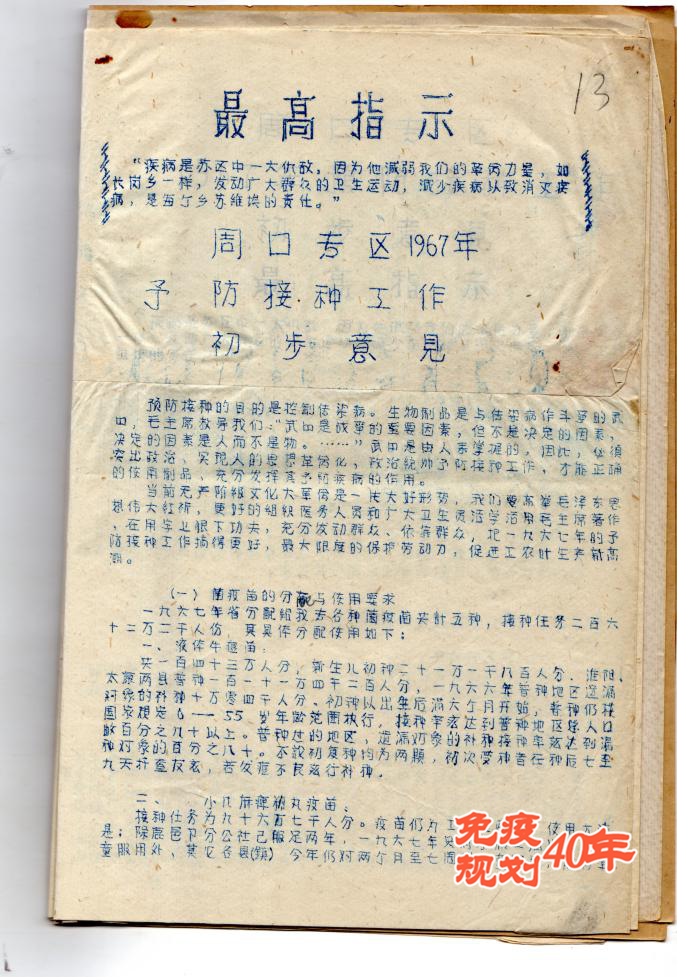 13
最高指示
“疾病是苏区中一大仇敌，因为他减弱我们的革命力量，如
长岗乡一样，发动广大群众的卫生运动，减少疾病以致消灭疾
病，是每个乡苏维埃的责任。”
周口专区1967年
予防接种工作
初步意见
预防接种的目的是控制传染病。生物制品是与传染病作斗争的武
田，毛主席教导我们“武田是战争的重要因素，但不是决定的因素，
决定的因素是人而不是物。……”武田是由人来掌握的，因此，必须
突出政治、实现人的思想革命化，政治统帅予防接种工作，才能正确
的使用制品、充分发挥其予防疾病的作用。
当前无产阶级文化大革命是一片大好形势，我们要高举毛泽东思
想伟大红旗，更好的组织医务人员和广大卫生员活学活用毛主席著作
，在用字上狠下功夫，充分发动群众、依靠群众，把一九六七年的予
防接种工作搞得更好，最大限度的保护劳动力，促进工农叶生产新高
潮。
（一）菌疫苗的分配与使用要求
一九六七年省分配给我专各种菌疫苗共计五种，接种任务二百六
十二万二千人份，其具体分配使用如下：
一、液体牛痘苗：
共一百四十三万人分，新生儿初种二十一万一千八百人分．淮阳、
太康两县普种一百一十一万四千二百人分，一九六六年普种地区遗漏
对象的补种十万零四千人分、初种以出生后满六个月开始，普种仍按
国家规定0——55岁年龄范围执行，接种率应达到普种地区总人口
数百分之九十以上。普种过的地区，遗漏对象的补种接种率应达到漏
种对象的百分之八十。不论初复种均为两颗，初次受种者在种后七至
九天抨查反应，若发症不良应行补种。
二、小儿麻痺糖丸疫苗：
接种任务为九十六万七千人分。疫苗仍为
是：除鹿邑 分公社已服足两年，一九六七年
童服用外、其它各县(镇)今年仍对两个月至七周
免疫
规划40年